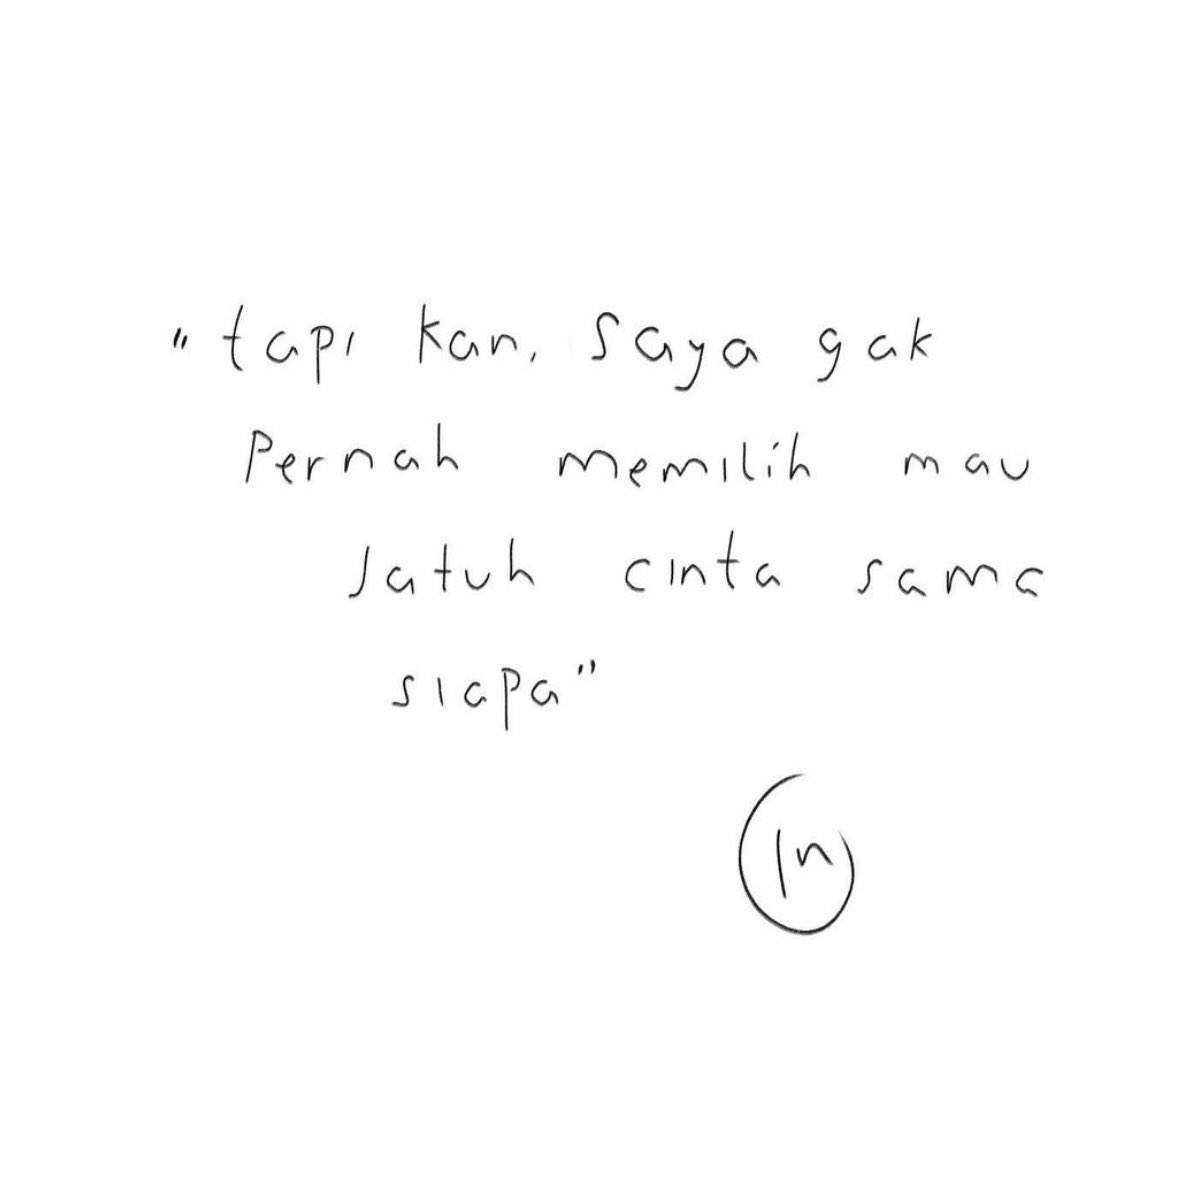 "tapi kan, saya gak
Pernah memilih mau
Jatuh cinta sama
siapa"
In